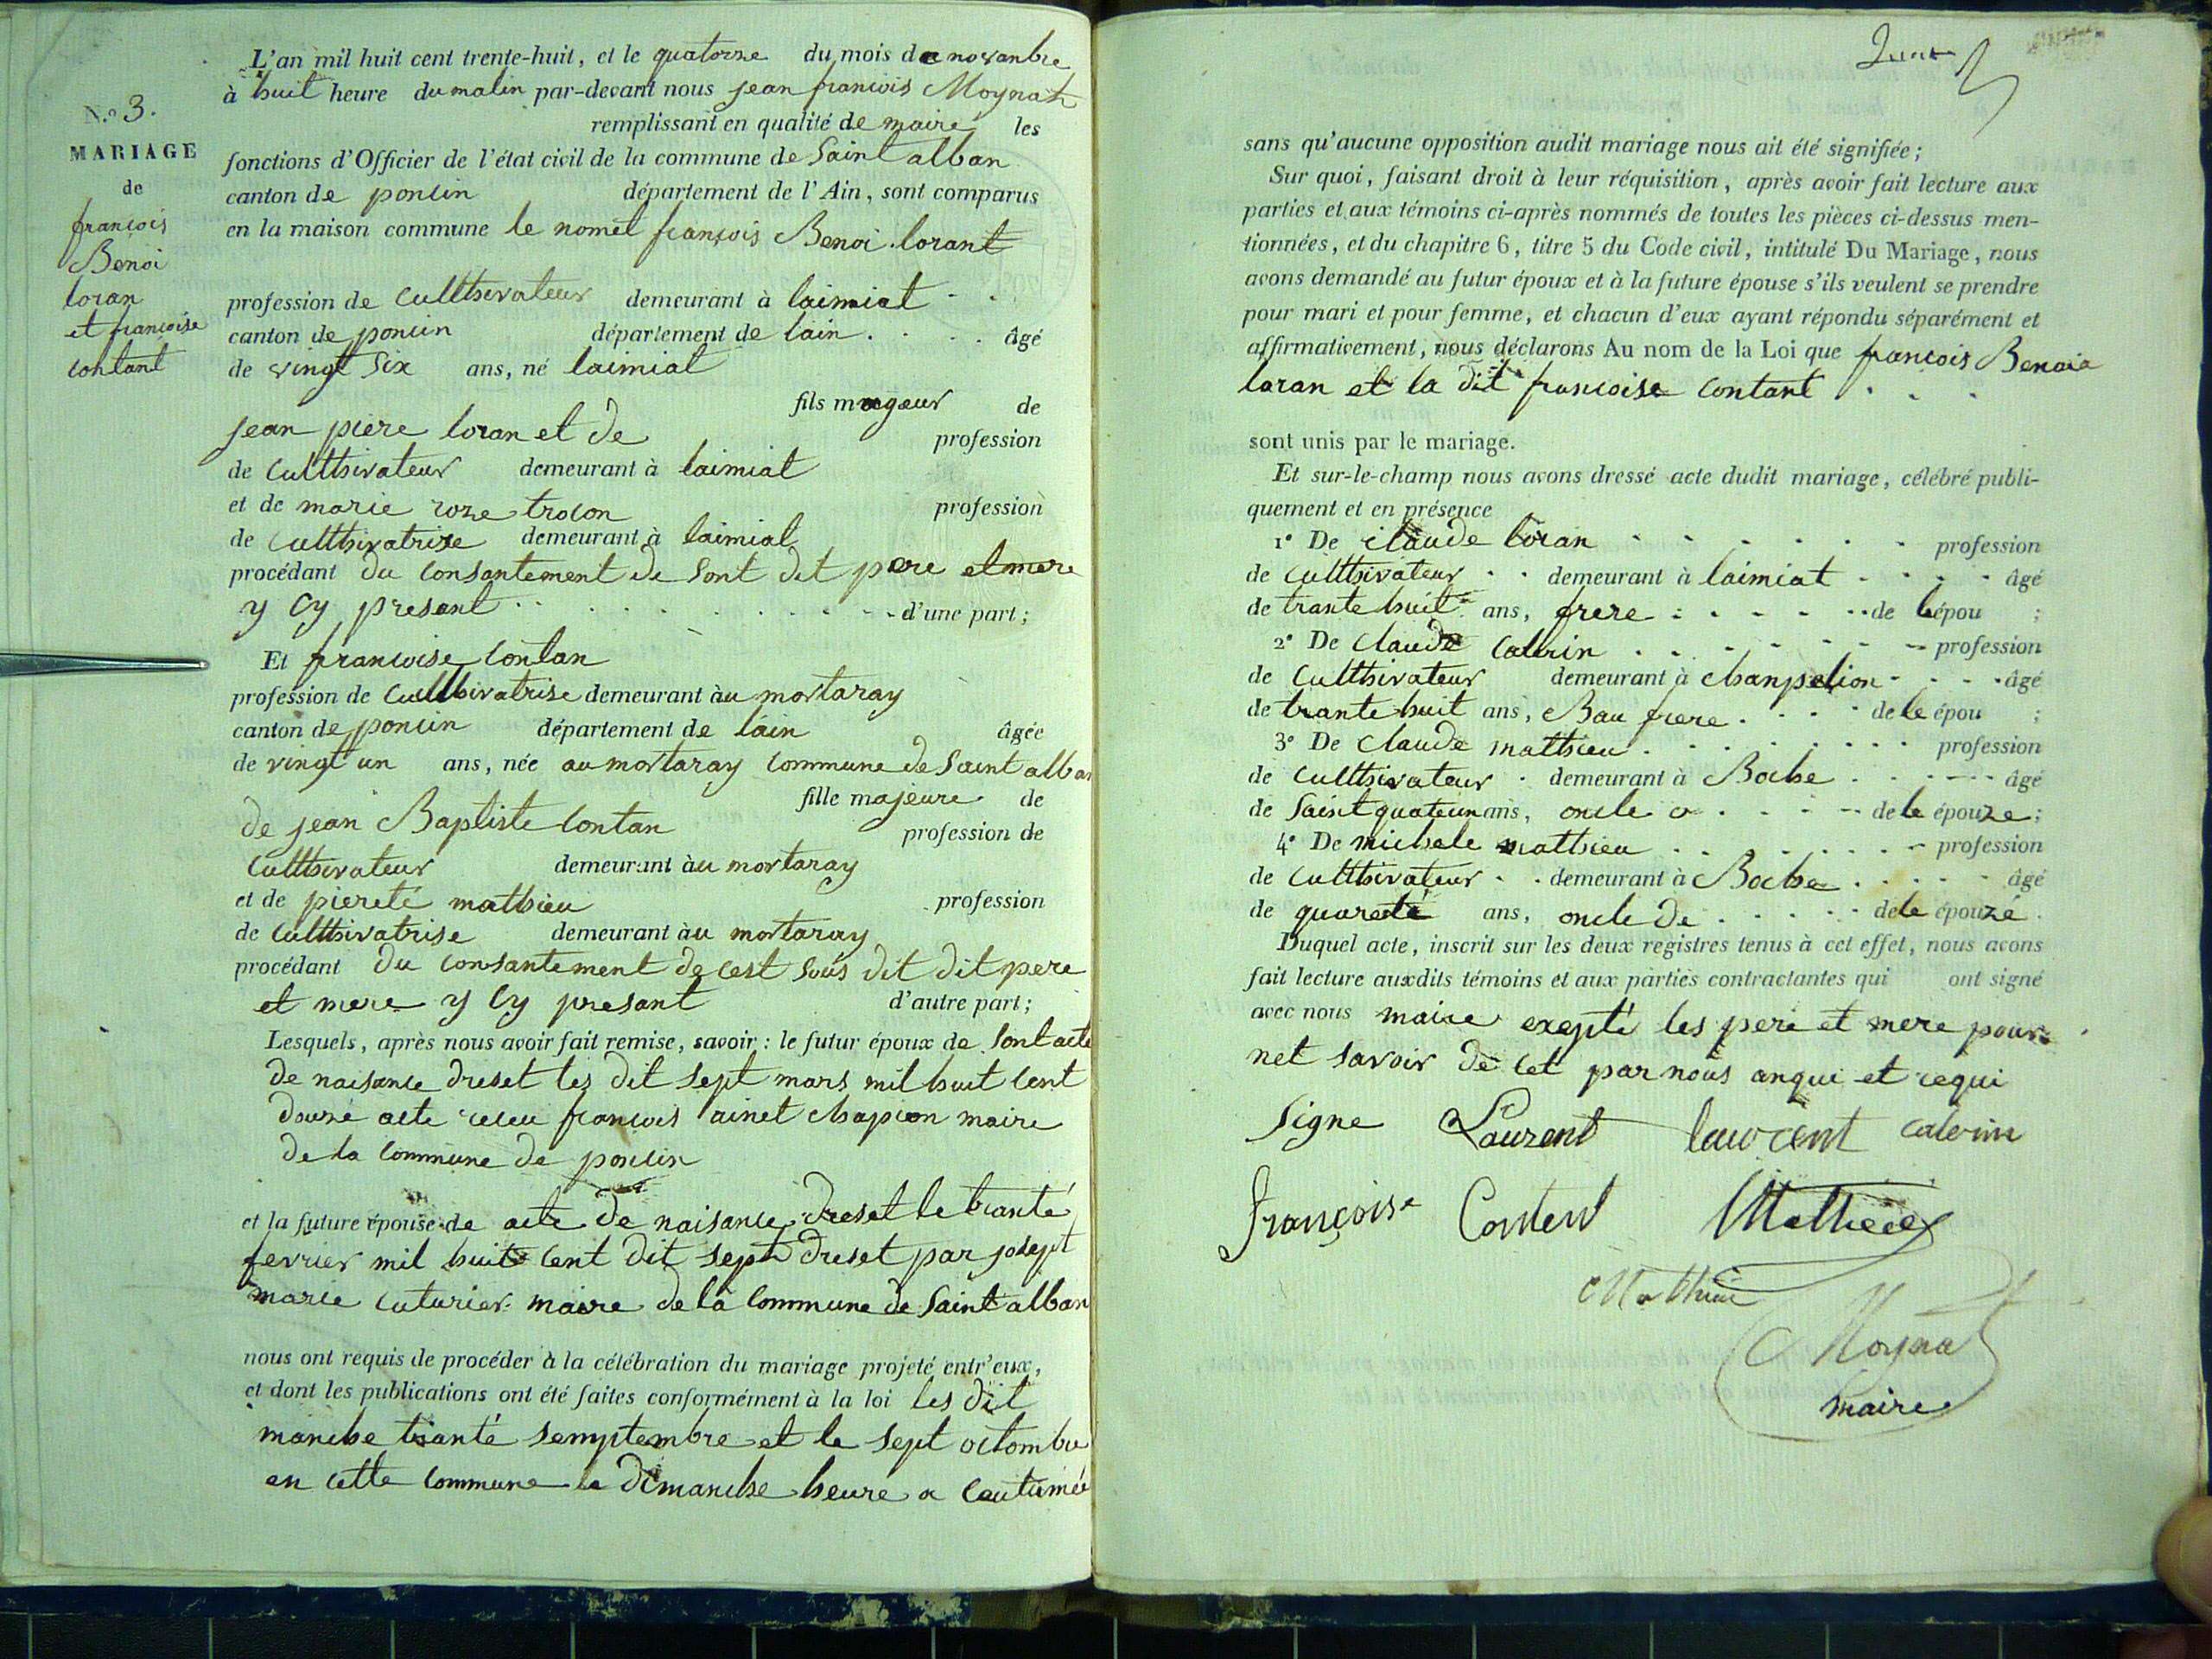 L'an mil huit cent trente-huit, et le quatorze du mois de novanbre
à huit heure du matin par-devant nous jean francois Moynat
remplissant en qualité de maire les
N.º 3.
MARIAGE
de
françois
Benoi
loran
et francoise
contant
fonctions d'Officier de l'état civil de la commune de Saint alban
canton de poncin département de l'Ain, sont comparus
en la maison commune le nomet françois Benoi lorant
profession de culthivateur demeurant à laimiat
canton de poncin département de lain . . . . âgé
de vingt six ans, né laimiat
fils mageur de
jean piere loran et de
profession
de culthivateur demeurant à laimiat
et de marie roze trocon profession
de culthivatrise demeurant à laimiat
procédant du consantement de sont dit pere et mere
y cy presant d'une part;
Et francoise contan
profession de culthivatrise demeurant àu mortaray
canton de poncin département de lain âgée
de vingt un ans, née au mortaray commune de Saint alban
fille majeure de
de jean Baptiste contan profession de
culthivateur demeurant àu mortaray
et de piereté mathieu profession
de culthivatrise demeurant àu mortaray
procédant du consantement de cest sous dit dit pere
et mere y cy presant d'autre part;
Lesquels, après nous avoir fait remise, savoir : le futur époux de sont acte
de naisance dreset les dit sept mars mil huit cent
douze acte receu francois ainet chapion maire
de la commune de poncin
et la future épouse de acte de naisance dreset le tranté
fevrier mil huit cent dit sept dreset par josept
marie cuturier maire de la commune de Saint alban
nous ont requis de procéder à la célébration du mariage projeté entr'eux,
et dont les publications ont été faites conformément à la loi les dit
manche tranté semptembre et le sept octombre
en cette commune le dimanche heure a coutumée
sans qu'aucune opposition audit mariage nous ait été signifiée;
Sur quoi, faisant droit à leur réquisition, après avoir fait lecture aux
parties et aux témoins ci-après nommés de toutes les pièces ci-dessus men-
tionnées, et du chapitre 6, titre 5 du Code civil, intitulé Du Mariage, nous
avons demandé au futur époux et à la future épouse s'ils veulent se prendre
pour mari et pour femme, et chacun d'eux ayant répondu séparément et
affirmativement, nous déclarons Au nom de la Loi que francois Benoia
loran et la dit francoise contant . . .
sont unis par le mariage.
Et sur-le-champ nous avons dressé acte dudit mariage, célébré publi-
quement et en présence
1º De claude loran . . . . . . profession
de culthivateur . . demeurant à laimiat . . . . âgé
de trante huit ans, frere . . . . . de lépou ;
2º De claude calvrin . . . . . profession
de culthivateur demeurant à chanpelion . . . âgé
de trante huit ans, Bau frere . . . . de le épou ;
3º De claude matthieu . . . . . . . . profession
de culthivateur . demeurant à Boche . . . . . âgé
de saint quateun ans, oncle a . . . . de le épouze ;
4º De michele matthieu . . . . . . profession
de culthivateur . . demeurant à Boche . . . . . âgé
de quareté ans, oncle de . . . . . de le épouzé .
Duquel acte, inscrit sur les deux registres tenus à cet effet, nous avons
fait lecture auxdits témoins et aux parties contractantes qui ont signé
avec nous maire exepté les pere et mere pour
net savoir de cet par nous anqui et requi
Signe Laurent laurent calvrin
françoise Content Mathieu
Mathieu
Moynat
maire